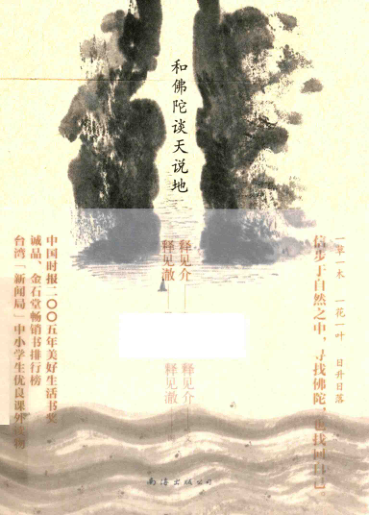 和佛陀谈天说地
一草一木 一花一叶 日升日落
信步于自然之中，寻找佛陀，也找回自己。
释见介
释见澈
释见介
释见澈
中国时报二〇〇五年美好生活书奖
诚品、金石堂畅销书排行榜
台湾「新闻局」中小学生优良课外读物
南海出版公司